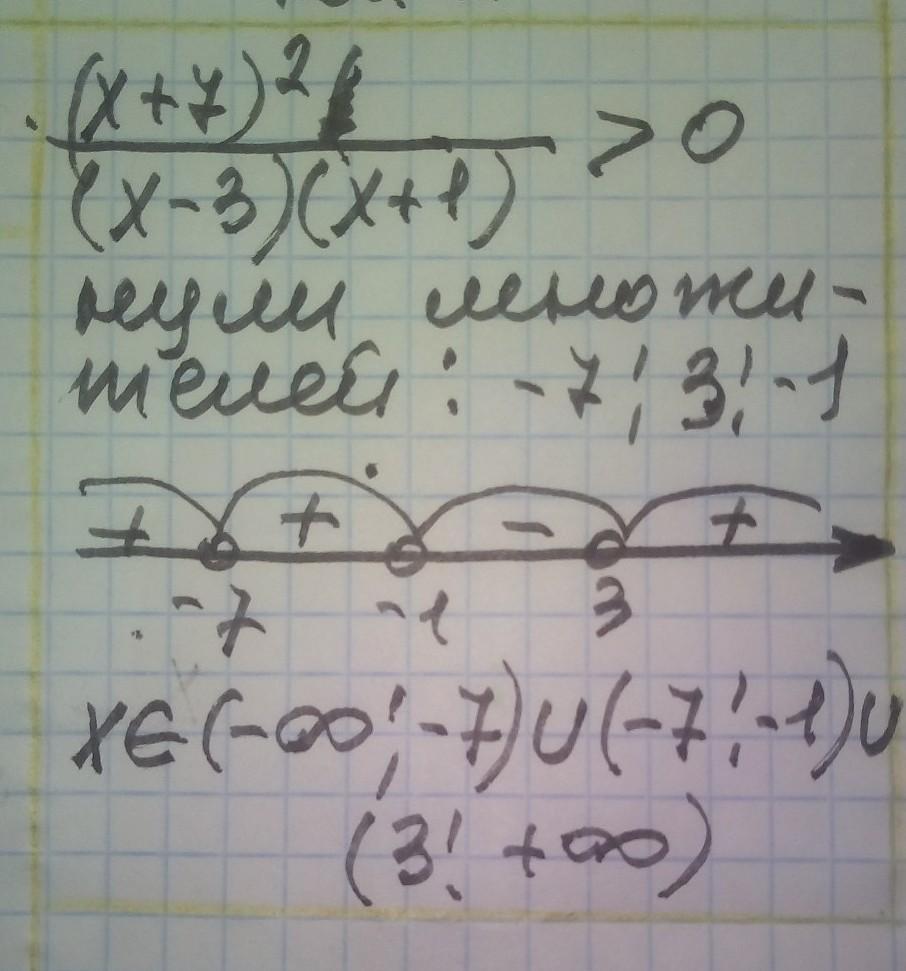 (x+7)²
(x-3)(x+1) > 0
нули множи-
телей: -7; 3; -1
+ + - +
-7 -1 3
x∈(-∞; -7)∪(-7; -1)∪
(3; +∞)